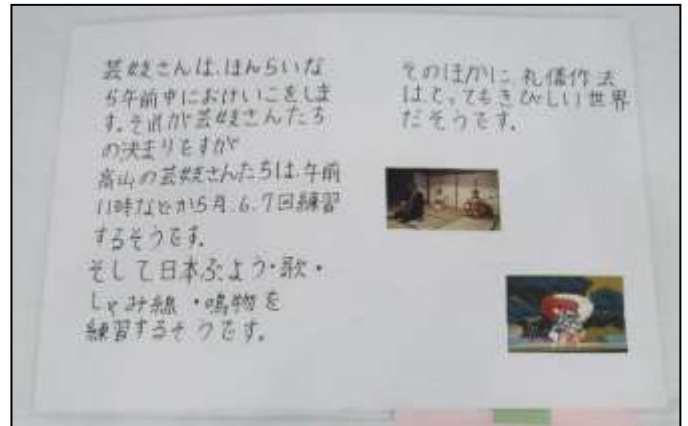 芸妓さんは、ほんらいな
ら午前中におけいこをしま
す。それが芸妓さんたち
の決まりですが
高山の芸妓さんたちは、午前
11時などから5月、6、7回練習
するそうです。
そして日本ぶよう・歌・
しゃみ線・鳴物を
練習するそうです。
そのほかに、礼儀作法
はとってもきびしい世界
だそうです。